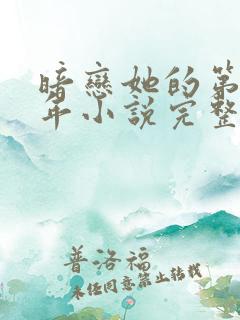 暗戀她的第
年小說完整
普洛福
未经同意禁止转载